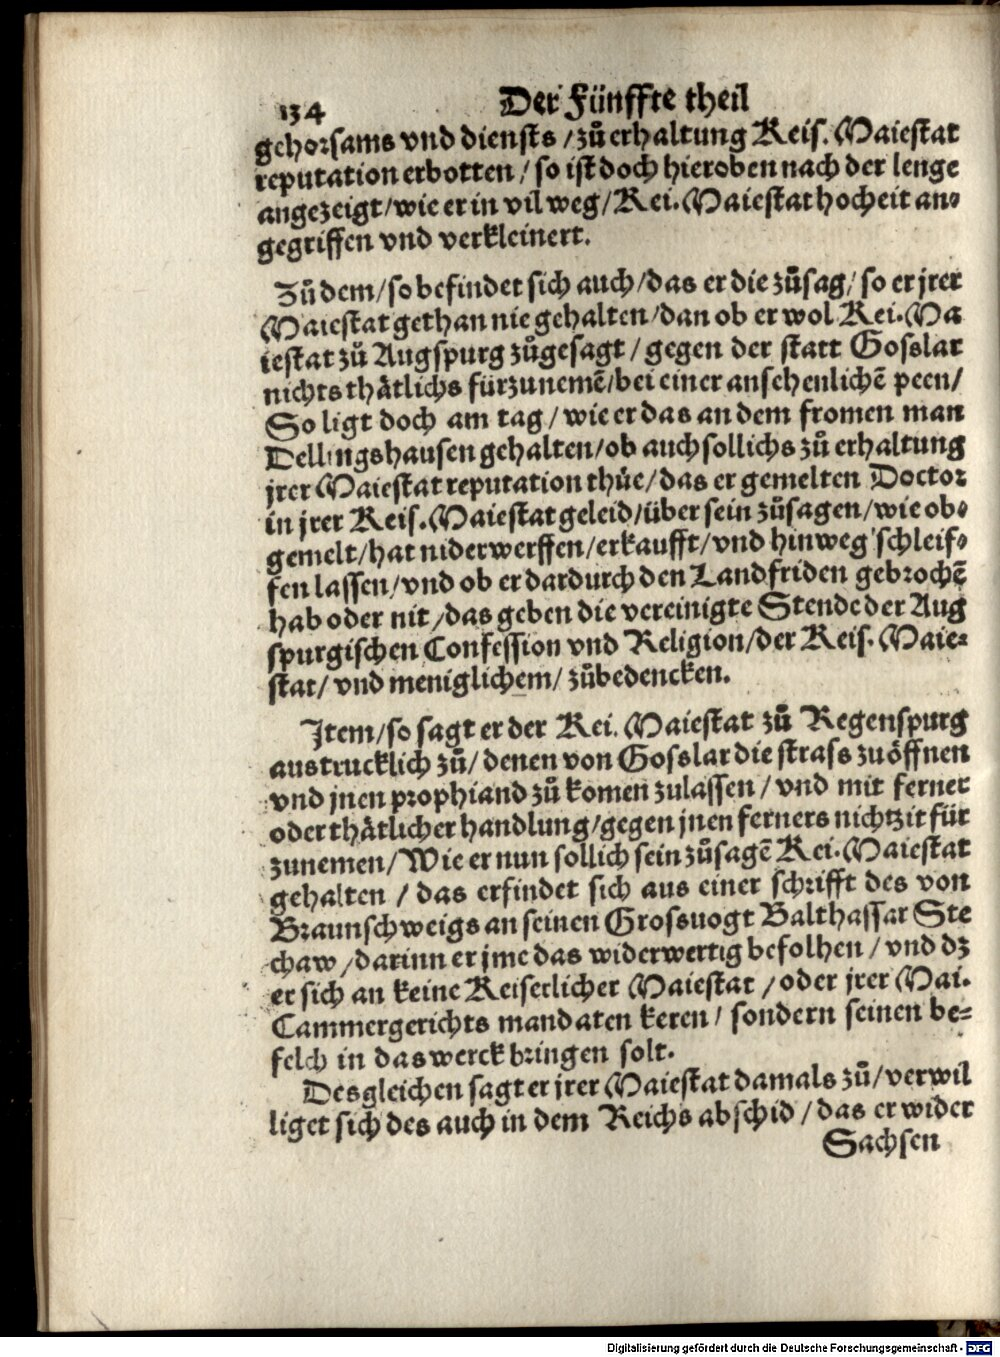 134
Der Fünffte theil
gehorsams vnd diensts / zů erhaltung Keis. Maiestat
reputation erbotten / so ist doch hieroben nach der lenge
angezeigt / wie er in vil weg / Kei. Maiestat hocheit an-
gegriffen vnd verkleinert.
Zů dem / so befindet sich auch / das er die zůsag / so er jrer
Maiestat gethan nie gehalten / dan ob er wol Kei. Ma
iestat zů Augspurg zůgesagt / gegen der statt Gosslar
nichts thätlichs fürzunemē / bei einer ansehenlichē peen /
So ligt doch am tag / wie er das an dem fromen man
Dellingshausen gehalten / ob auch sollichs zů erhaltung
jrer Maiestat reputation thüe / das er gemelten Doctor
in jrer Keis. Maiestat geleid / über sein zůsagen / wie ob-
gemelt / hat niderwerffen / erkaufft / vnd hinweg schleif-
fen lassen / vnd ob er dardurch den Landfriden gebrochē
hab oder nit / das geben die vereinigte Stende der Aug
spurgischen Confession vnd Religion / der Keis. Maie-
stat / vnd meniglichem / zůbedencken.
Jtem / so sagt er der Kei. Maiestat zů Regenspurg
austrucklich zů / denen von Gosslar die strass zuöffnen
vnd jnen prophiand zů komen zulassen / vnd mit ferner
oder thätlicher handlung / gegen jnen ferners nichtzit für
zunemen / Wie er nun sollich sein zůsagē Kei. Maiestat
gehalten / das erfindet sich aus einer schrifft des von
Braunschweigs an seinen Grossuogt Balthassar Ste
chaw / darinn er jme das widerwertig befolhen / vnd dz
er sich an keine Keiserlicher Maiestat / oder jrer Mai.
Cammergerichts mandaten keren / sondern seinen be-
felch in das werck bringen solt.
Desgleichen sagt er jrer Maiestat damals zů / verwil
liget sich des auch in dem Reichs abschid / das er wider
Sachsen
Digitalisierung gefördert durch die Deutsche Forschungsgemeinschaft - DFG